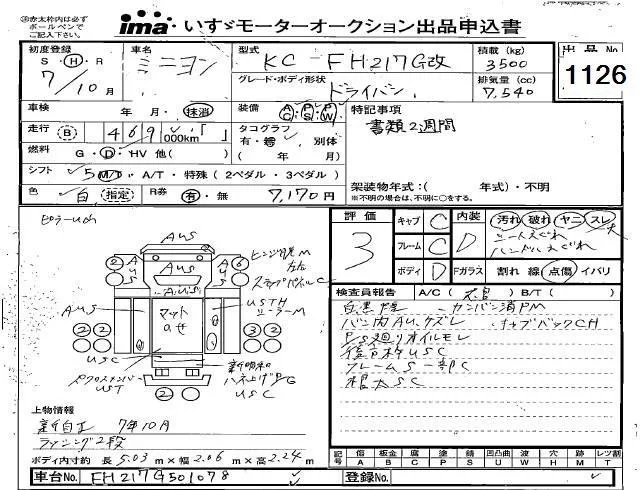 ※赤太枠内は必ず
ボールペンで
ご記入下さい。
ima いすゞモーターオークション出品申込書
初度登録 車名 型式 積載(kg) 出品No.
S・H・R ミニヨン KC-FH217G改 3500 1126
7/10月 グレード・ボディ形状 排気量(cc)
ドライバン 7,540
車検 年・月・抹消 装備 AC PS PW 特記事項
走行 B 469 000km タコグラフ 書類2週間
有・無 別体
燃料 G・D・HV 他( ) ( 年 月)
シフト 5 M/T・A/T・特殊(2ペダル・3ペダル)
色 白 指定 R券 有・無 7,170円
架装物年式:( 年式)・不明
※不明の場合は、不明に○をする。
ピラーUひ
評価 3
キャブ C 内装 D 汚れ 破れ ヤニ スレ
フレーム C
ボディ D Fガラス 割れ 線 点傷 イバリ
AUS
AUS
AUS
USTH
マット
のせ
USC
UST
検査員報告 A/C( ) B/T( )
カンバン消PM
バン内AU、ケズレ キャブバックCH
P/S廻りオイルモレ
後戸枠USC
フレームS一部C
根太SC
上物情報
新自正 7年10月
ラッシング2段
ボディ内寸約 長5.03m×幅2.06m×高2.24m
記号 傷A 板金B 腐C 塗P 錆S 凹凸曲U 波W 穴H 跡M レツ割T
車台No. FH217G501078 登録No.